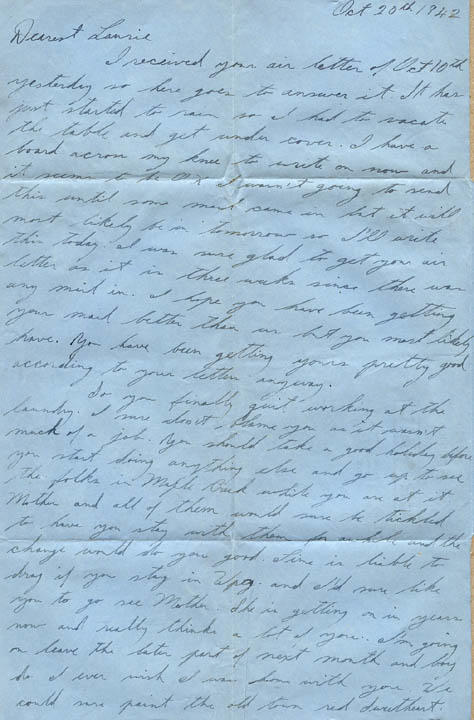 Oct 20th 1942
Dearest Laurie
I received your air letter of Oct 10th
yesterday so here goes to answer it. It has
just started to rain so I had to vacate
the table and get under cover. I have a
board across my knee to write on now and
it seems to be OK. I wasn't going to send
this until some mail came in but it will
most likely be in tomorrow so I'll write
this today. I was sure glad to get your air
letter as it is three weeks since there was
any mail in. I hope you have been getting
your mail better than us but you most likely
have. You have been getting yours pretty good
according to your letters anyway.
So you finally quit working at the
laundry. I sure don't blame you as it wasn't
much of a job. You should take a good holiday before
you start doing anything else and go up to see
the folks in Maple Creek while you are at it
Mother and all of them would sure be tickled
to have you stay with them for awhile and the
change would do you good. Time is liable to
drag if you stay in Wpg. and I'd sure like
you to go see Mother. She is getting on in years
now and really thinks a lot of you. I'm going
on leave the later part of next month and boy
do I ever wish I was home with you. We
could sure paint the old town red sweetheart.